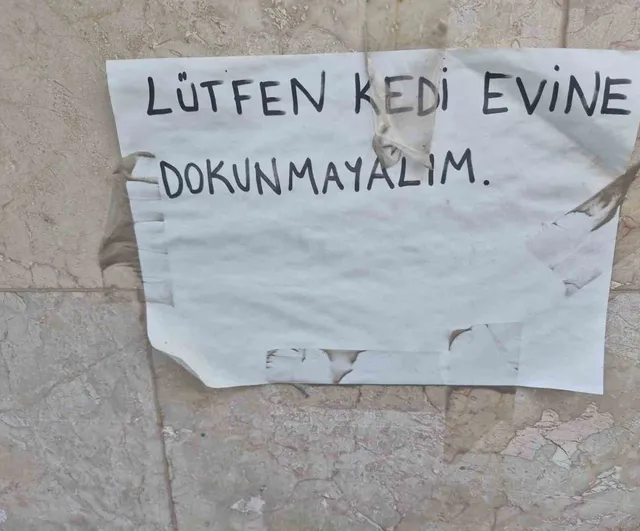 LÜTFEN KEDİ EVİNE
DOKUNMAYALIM.